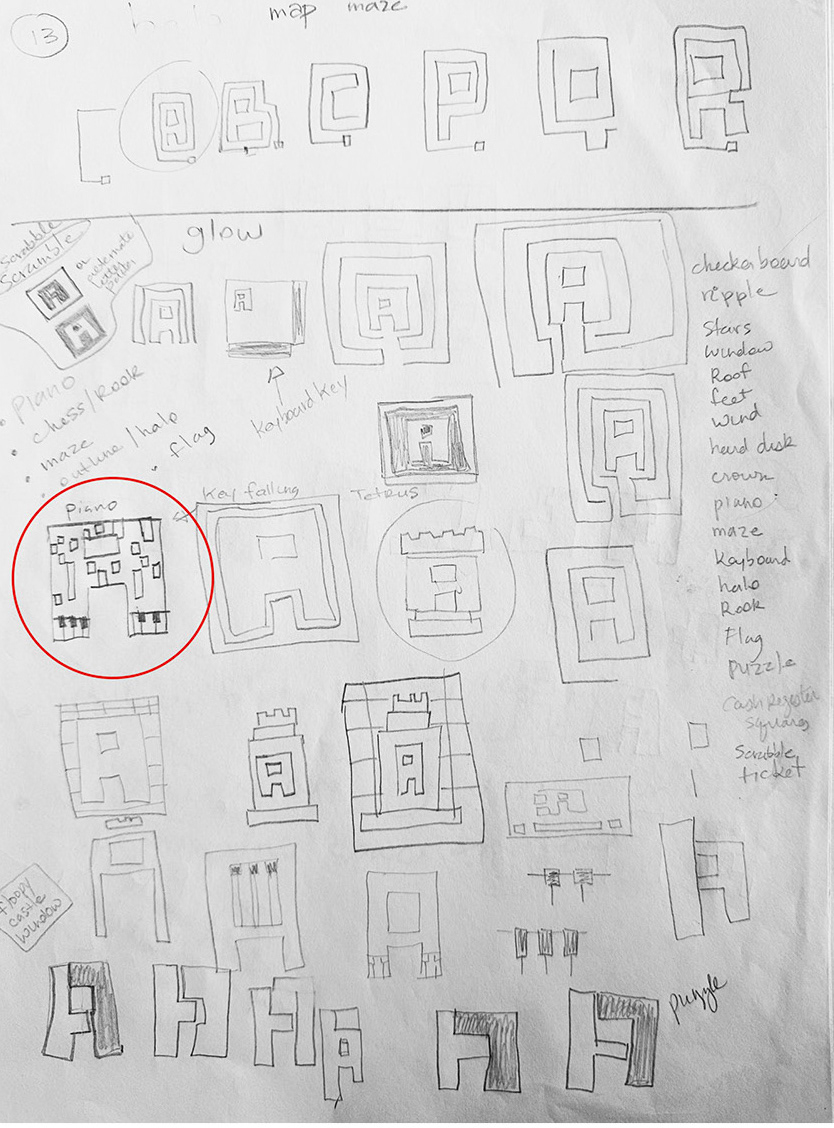 13
halo map maze
A B C P Q R
Scrabble
Scramble
or
glow
• Piano
• chess/Rook
• maze
• outline/halo
• flag
Keyboard key
checkerboard
ripple
Stars
window
Roof
feet
wind
hard disk
crown
piano
maze
Keyboard
halo
Rook
Flag
puzzle
Cash Register
squares
Scrabble
ticket
Piano
Key falling
Tetrus
floppy
castle
window
puzzle